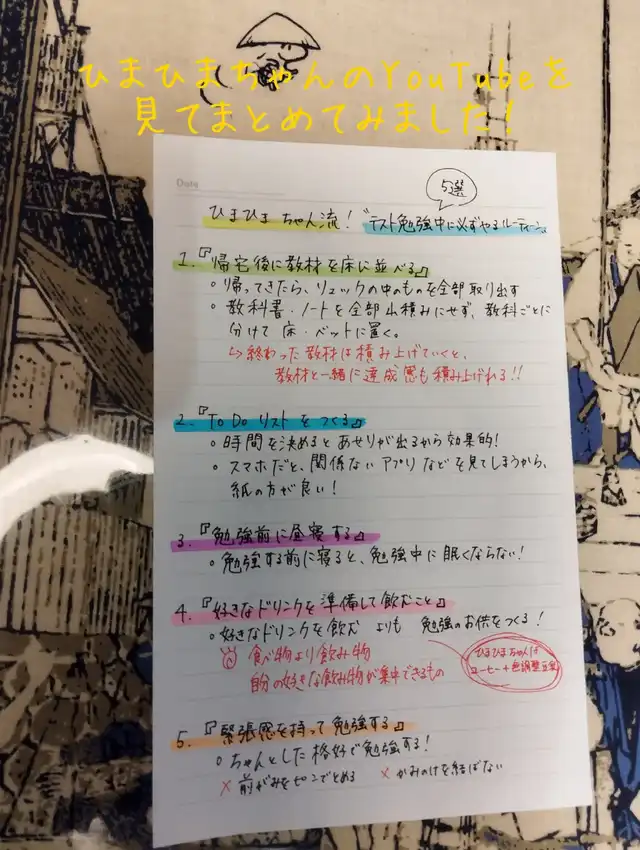 ひまひまちゃんのYouTubeを
見てまとめてみました!
Date
5選
ひまひまちゃん流!『テスト勉強中に必ずやるルーティーン』
1.『帰宅後に教材を床に並べる』
○帰ってきたら、リュックの中のものを全部取り出す
○教科書・ノートを全部山積みにせず、教科ごとに
分けて床・ベットに置く。
↳終わった教材は積み上げていくと、
教材と一緒に達成感も積み上げれる!!
2.『To Do リストをつくる』
○時間を決めるとあせりが出るから効果的!
○スマホだと、関係ないアプリなどを見てしまうから、
紙の方が良い!
3.『勉強前に昼寝する』
○勉強する前に寝ると、勉強中に眠くならない!
4.『好きなドリンクを準備して飲むこと』
○好きなドリンクを飲む よりも 勉強のお供をつくる!
食べ物より飲み物
自分の好きな飲み物が集中できるもの
ひまひまちゃんは
コーヒー+
5.『緊張感を持って勉強する』
○ちゃんとした格好で勉強する!
×前がみをピンでとめる ×かみのけを結ばない